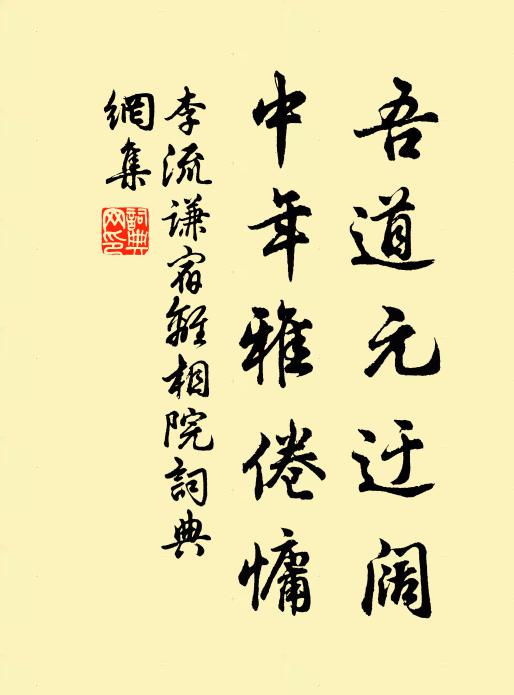 吾道元迂阔
中年雅倦慵
李流谦宿離相院詞典
網集
詞典网印